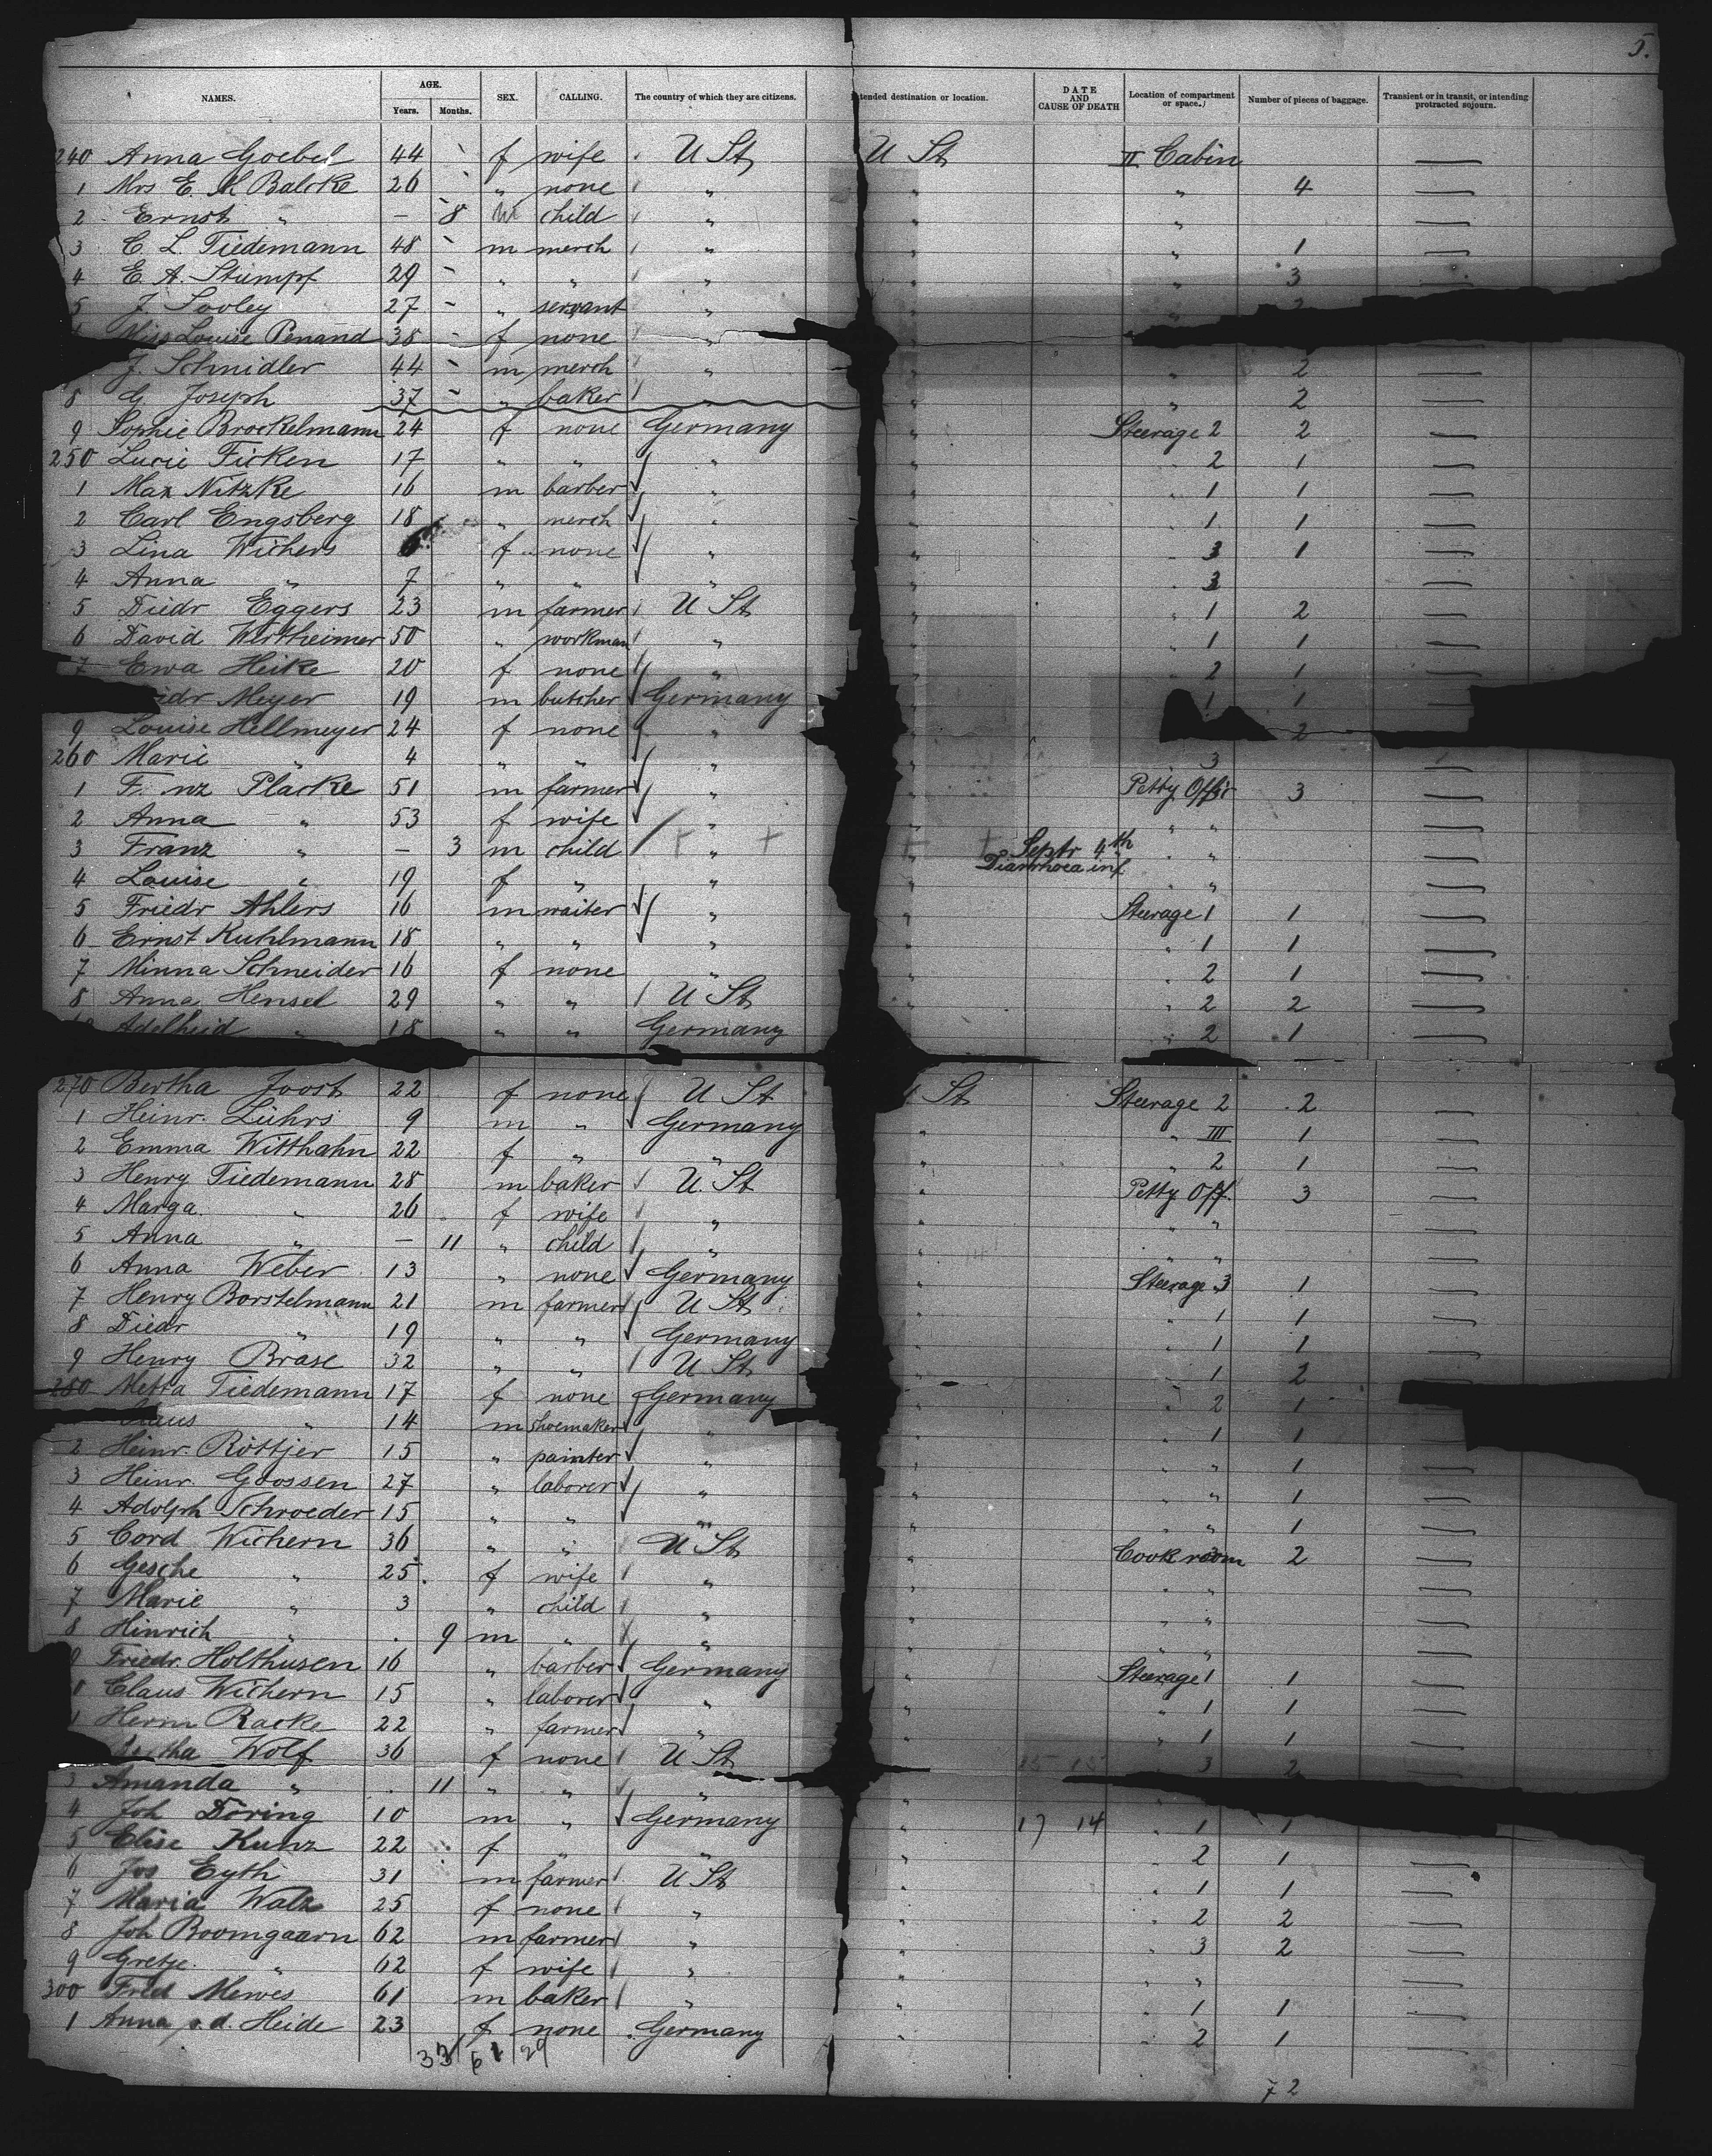 5.
NAMES. AGE. Years. Months. SEX. CALLING. The country of which they are citizens. Intended destination or location. DATE AND CAUSE OF DEATH Location of compartment or space. Number of pieces of baggage. Transient or in transit, or intending protracted sojourn.
240 Anna Goebel 44 f wife U St U St II Cabin —
1 Mrs E. M Balcke 26 " none " " " 4 —
2 Ernst " — 8 m child " " " —
3 C. L. Tiedemann 48 m merch " " " 1 —
4 E. A. Stumpf 29 " " " " " 3 —
5 J. Sooley 27 " servant " " 2
Miss Louise Penand 38 f none "
J. Schnidler 44 m merch " " " 2 —
8 G Joseph 37 " baker " " " 2 —
9 Sophie Brockelmann 24 f none Germany " Steerage 2 2 —
250 Lucie Ficken 17 " " " " " 2 1 —
1 Max Nitzke 16 m barber " " " 1 1 —
2 Carl Engsberg 18 " merch " " " 1 1 —
3 Lina Wichers f none " " " 3 1 —
4 Anna " 7 " " " " 3 —
5 Diedr Eggers 23 m farmer U St " " 1 2 —
6 David Wertheimer 50 " workman " " " 1 1 —
7 Ewa Heike 20 f none " " " 2 1 —
Meyer 19 m butcher Germany " 1 1
9 Louise Hellmeyer 24 f none " " 2
260 Marie " 4 " " " " " 3 —
1 F nz Placke 51 m farmer " " Petty Offic 3 —
2 Anna " 53 f wife " " " " —
3 Franz " — 3 m child " " Septr 4th Diarrhoea inf " " —
4 Louise " 19 f " " " " —
5 Friedr Ahlers 16 m waiter " " Steerage 1 1 —
6 Ernst Kuhlmann 18 " " " " " 1 1 —
7 Minna Schneider 16 f none " " " 2 1 —
8 Anna Hensel 29 " " U St " " 2 2 —
Adelheid " 18 " " Germany " " 2 1 —
270 Bertha Joost 22 f none U St St Steerage 2 2 —
1 Heinr. Lührs 9 m " Germany " " III 1 —
2 Emma Witthahn 22 f " " " " 2 1 —
3 Henry Tiedemann 28 m baker U. St " Petty Off. 3 —
4 Marga. " 26 f wife " " " " —
5 Anna " — 11 " child " " " " —
6 Anna Weber 13 " none Germany " Steerage 3 1 —
7 Henry Borstelmann 21 m farmer U St " " 1 1 —
8 Diedr " 19 " " Germany " " 1 1 —
9 Henry Brase 32 " " U St " " 1 2 —
280 Metta Tiedemann 17 f none Germany " " 2 1
Claus " 14 m shoemaker " " " 1 1
2 Heinr. Röttjer 15 " painter " " " " 1 —
3 Heinr. Goossen 27 " laborer " " " " 1 —
4 Adolph Schroeder 15 " " " " " " 1 —
5 Cord Wichern 36 " " U St " Cook room 2 —
6 Gesche " 25 f wife " " " " —
7 Marie " 3 " child " " " " —
8 Hinrich " . 9 m " " " " " —
9 Friedr. Holthusen 16 " barber Germany " Steerage 1 1 —
0 Claus Wichern 15 " laborer " " " 1 1 —
1 Herm Racke 22 " farmer " " " 1 1 —
Bertha Wolf 36 f none U St " 3 2
3 Amanda " . 11 " " " "
4 Joh Doring 10 m " Germany " 17 14 " 1 1
5 Elise Kunz 22 f " " " " 2 1 —
6 Jos Eyth 31 m farmer U St " " 1 1 —
7 Maria Walz 25 f none " " " 2 2 —
8 Joh Boomgaarn 62 m farmer " " " 3 2 —
9 Gretje " 62 f wife " " " " —
300 Fred Mewes 61 m baker " " " 1 1 —
1 Anna v. d. Heide 23 f none Germany " 2 1 —
72